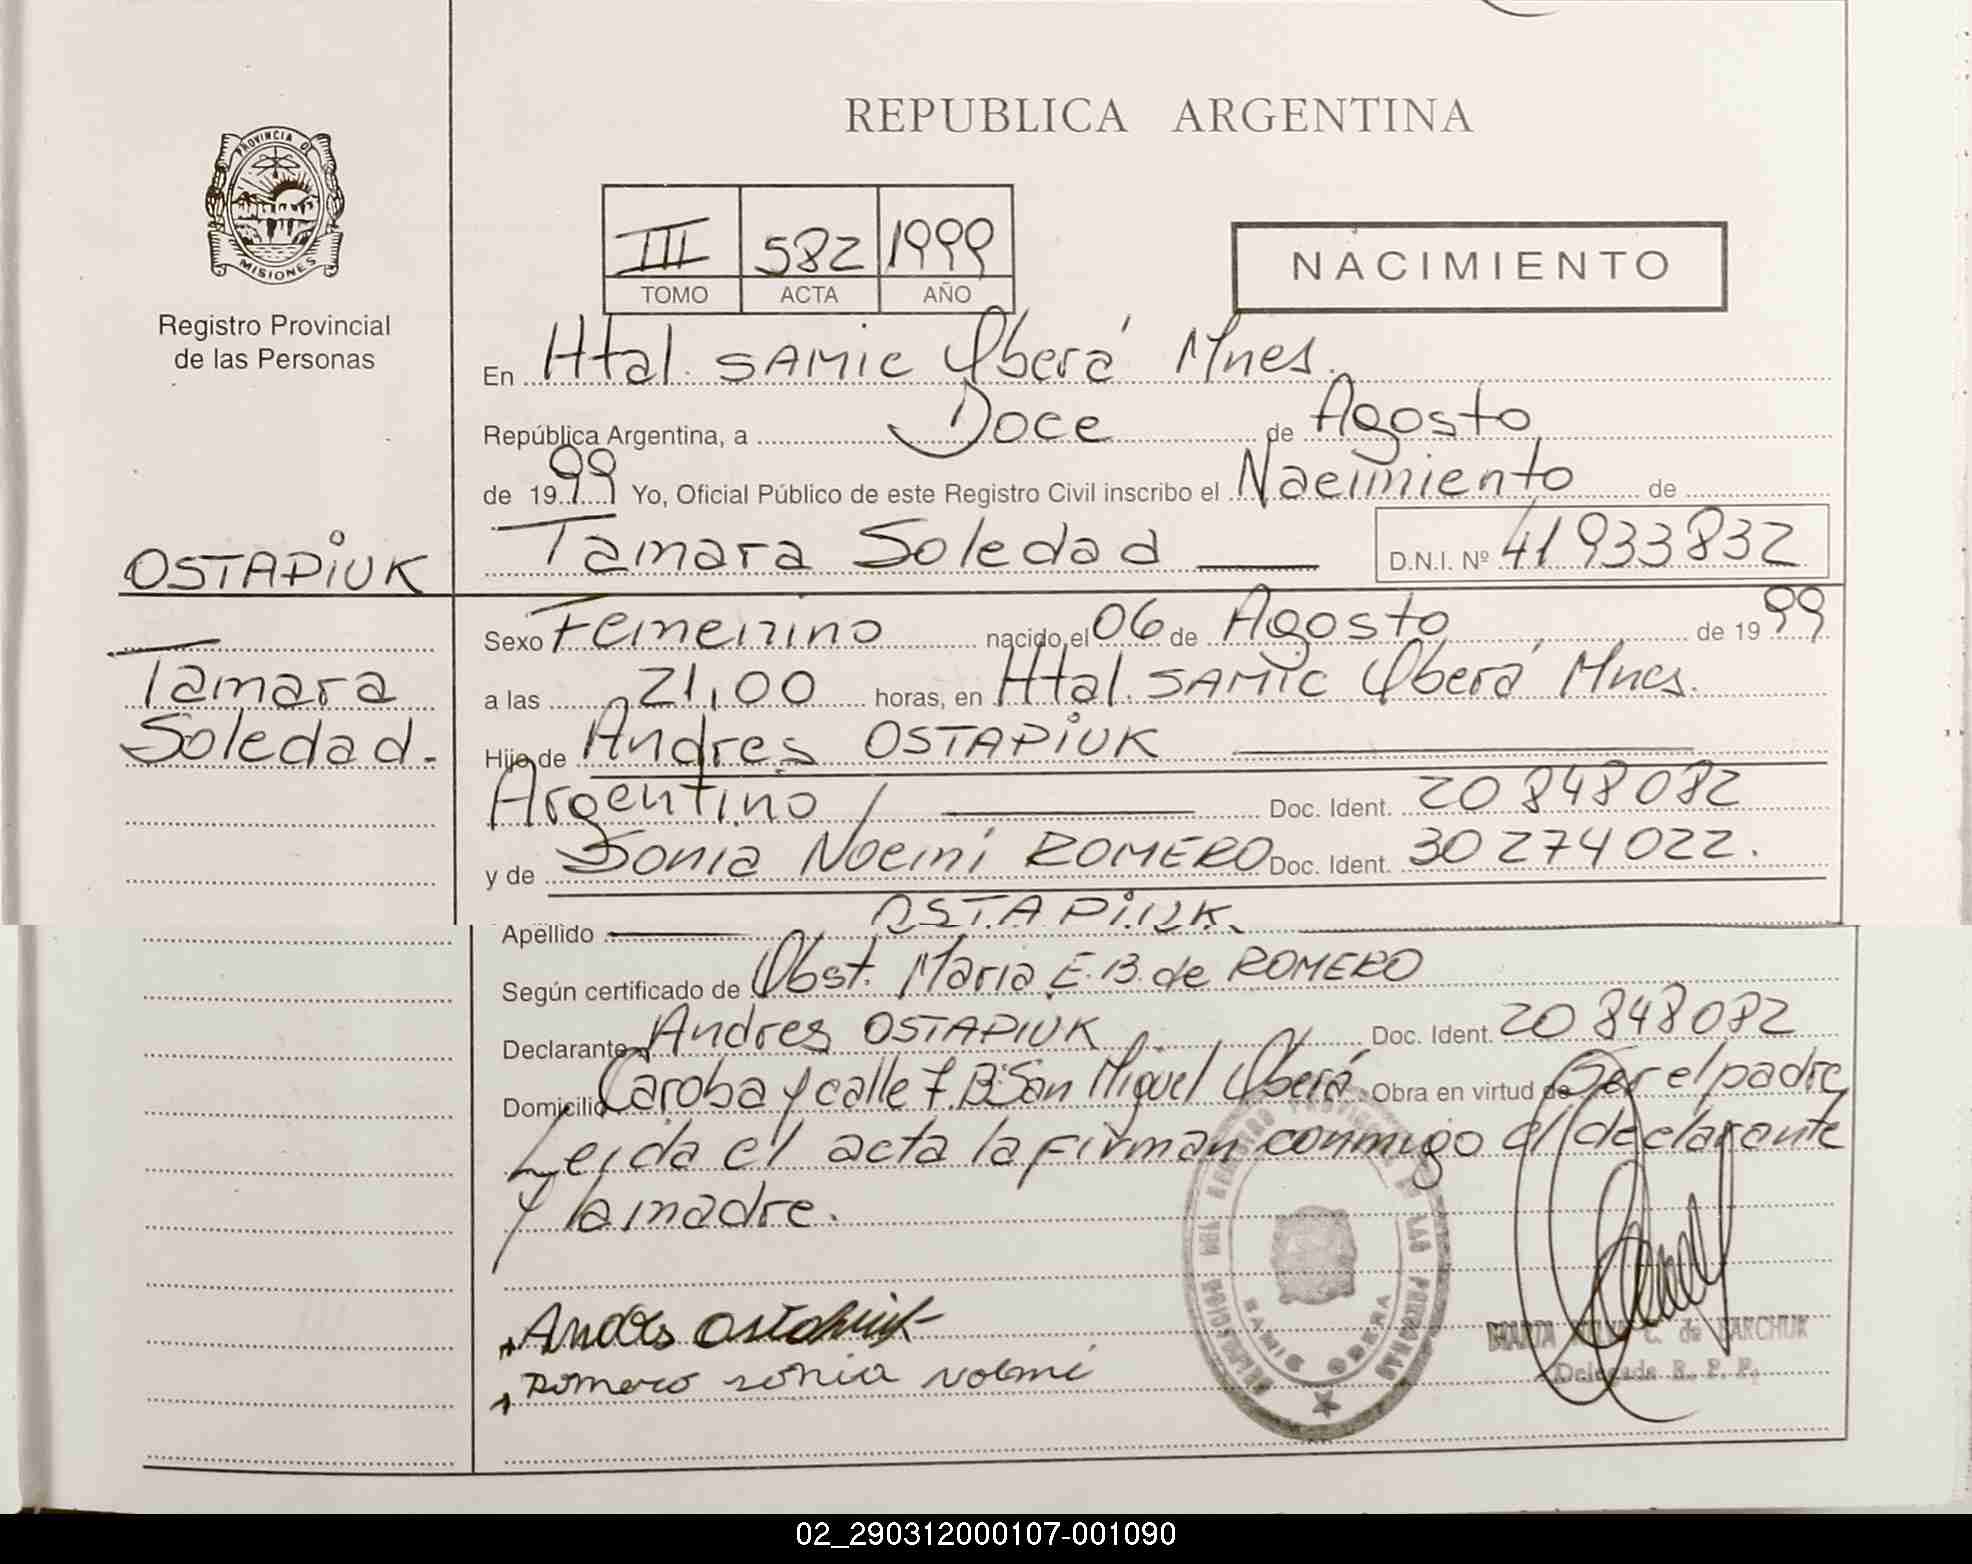 REPUBLICA ARGENTINA
PROVINCIA DE
MISIONES
Registro Provincial
de las Personas
III 582 1999
TOMO ACTA AÑO
NACIMIENTO
En Htal. SAMIC Oberá Mnes.
República Argentina, a Doce de Agosto
de 1999 Yo, Oficial Público de este Registro Civil inscribo el Nacimiento de
Tamara Soledad D.N.I. Nº 41933832
OSTAPiUK
Tamara
Soledad.
Sexo Femenino nacido el 06 de Agosto de 1999
a las 21,00 horas, en Htal. SAMIC Oberá Mnes.
Hijo de Andres OSTAPiUK
Argentino Doc. Ident. 20848082
y de Sonia Noemi ROMERO Doc. Ident. 30274022.
Apellido OSTAPiUK
Según certificado de Obst. Maria E.B. de ROMERO
Declarante Andres OSTAPIUK Doc. Ident. 20848082
Domicilio Caroba y calle 7. Bº San Miguel Oberá Obra en virtud de Ser el padre
Leida el acta la firman conmigo el declarante
y la madre.
Andrés Ostapiuk
Romero sonia noemi
REGISTRO PROVINCIAL DE LAS PERSONAS
SAMIC OBERA
MARTA C. de
Delegada R. P. P.
02_290312000107-001090